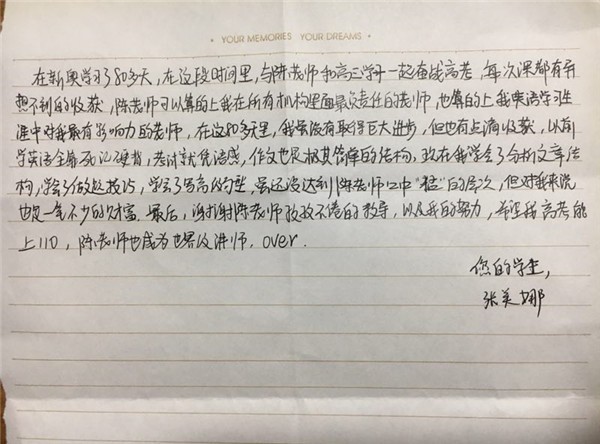 YOUR MEMORIES YOUR DREAMS
在新奥学习了80多天，在这段时间里，与陈老师和高三学子一起奋战高考，每次课都有意
想不到的收获，陈老师可以算的上我在所有机构里面最负责任的老师，也算的上我英语学习生
涯中对我最有影响力的老师，在这80多天里，我虽没有取得巨大进步，但也有点滴收获，以前
学英语全靠死记硬背，考试就凭语感，作文也是极其简单的结构，现在我学会了分析文章结
构，学会了做题技巧，学会了写高级句型，虽还没达到陈老师口中“猛”的层次，但对我来说
也是一笔不少的财富。最后，谢谢陈老师孜孜不倦的教导，以及我的努力，希望我高考能
上110，陈老师也成为世界级讲师，over.
您的学生，
张美娜